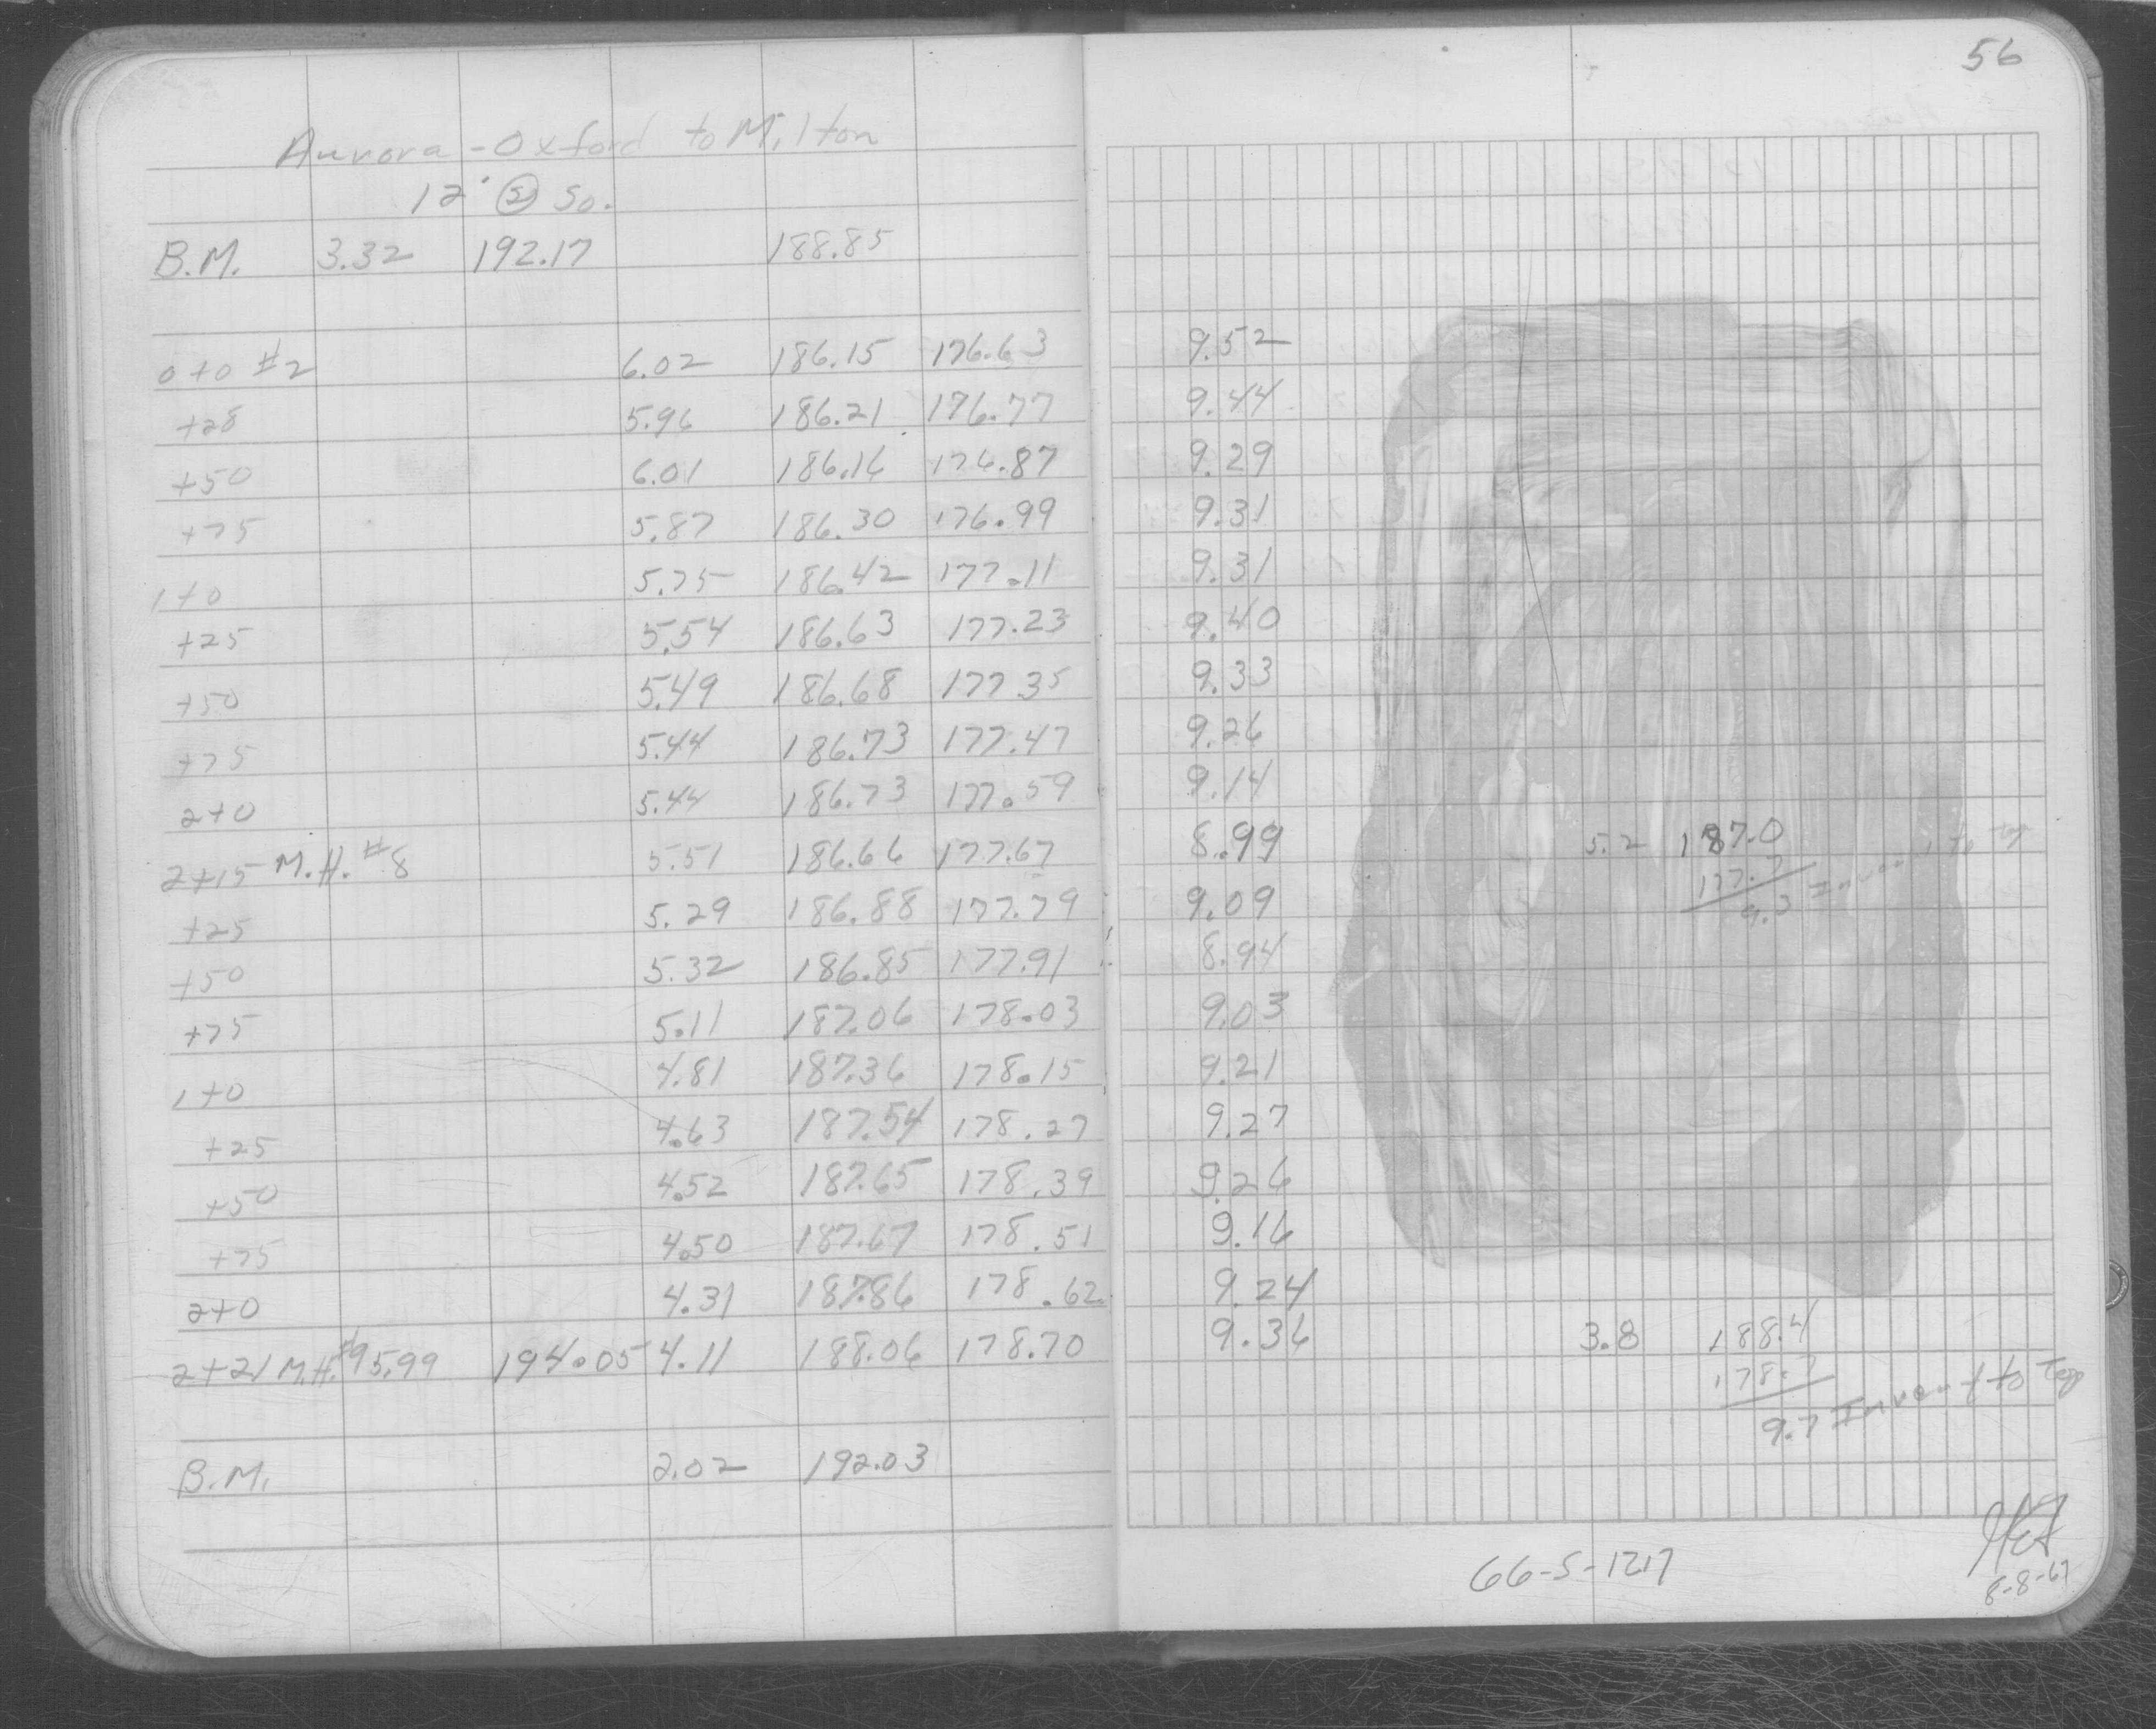 56
Aurora - Oxford to Milton
12" Ⓢ So.
B.M. 3.32 192.17 188.85
0+0 #2 6.02 186.15 176.63 9.52
+28 5.96 186.21 176.77 9.44
+50 6.01 186.16 176.87 9.29
+75 5.87 186.30 176.99 9.31
1+0 5.75 186.42 177.11 9.31
+25 5.54 186.63 177.23 9.40
+50 5.49 186.68 177.35 9.33
+75 5.44 186.73 177.47 9.26
2+0 5.44 186.73 177.59 9.14
2+15 M.H. #8 5.51 186.66 177.67 8.99 5.2 187.0
177.7
+25 5.29 186.88 177.79 9.09 9.3 Invert to Top
+50 5.32 186.85 177.91 8.94
+75 5.11 187.06 178.03 9.03
1+0 4.81 187.36 178.15 9.21
+25 4.63 187.54 178.27 9.27
+50 4.52 187.65 178.39 9.26
+75 4.50 187.67 178.51 9.16
2+0 4.31 187.86 178.62 9.24
2+21 M.H. #9 5.99 194.05 4.11 188.06 178.70 9.36 3.8 188.4
178.7
9.7 Invert to Top
B.M. 2.02 192.03
66-S-1217
8-8-67